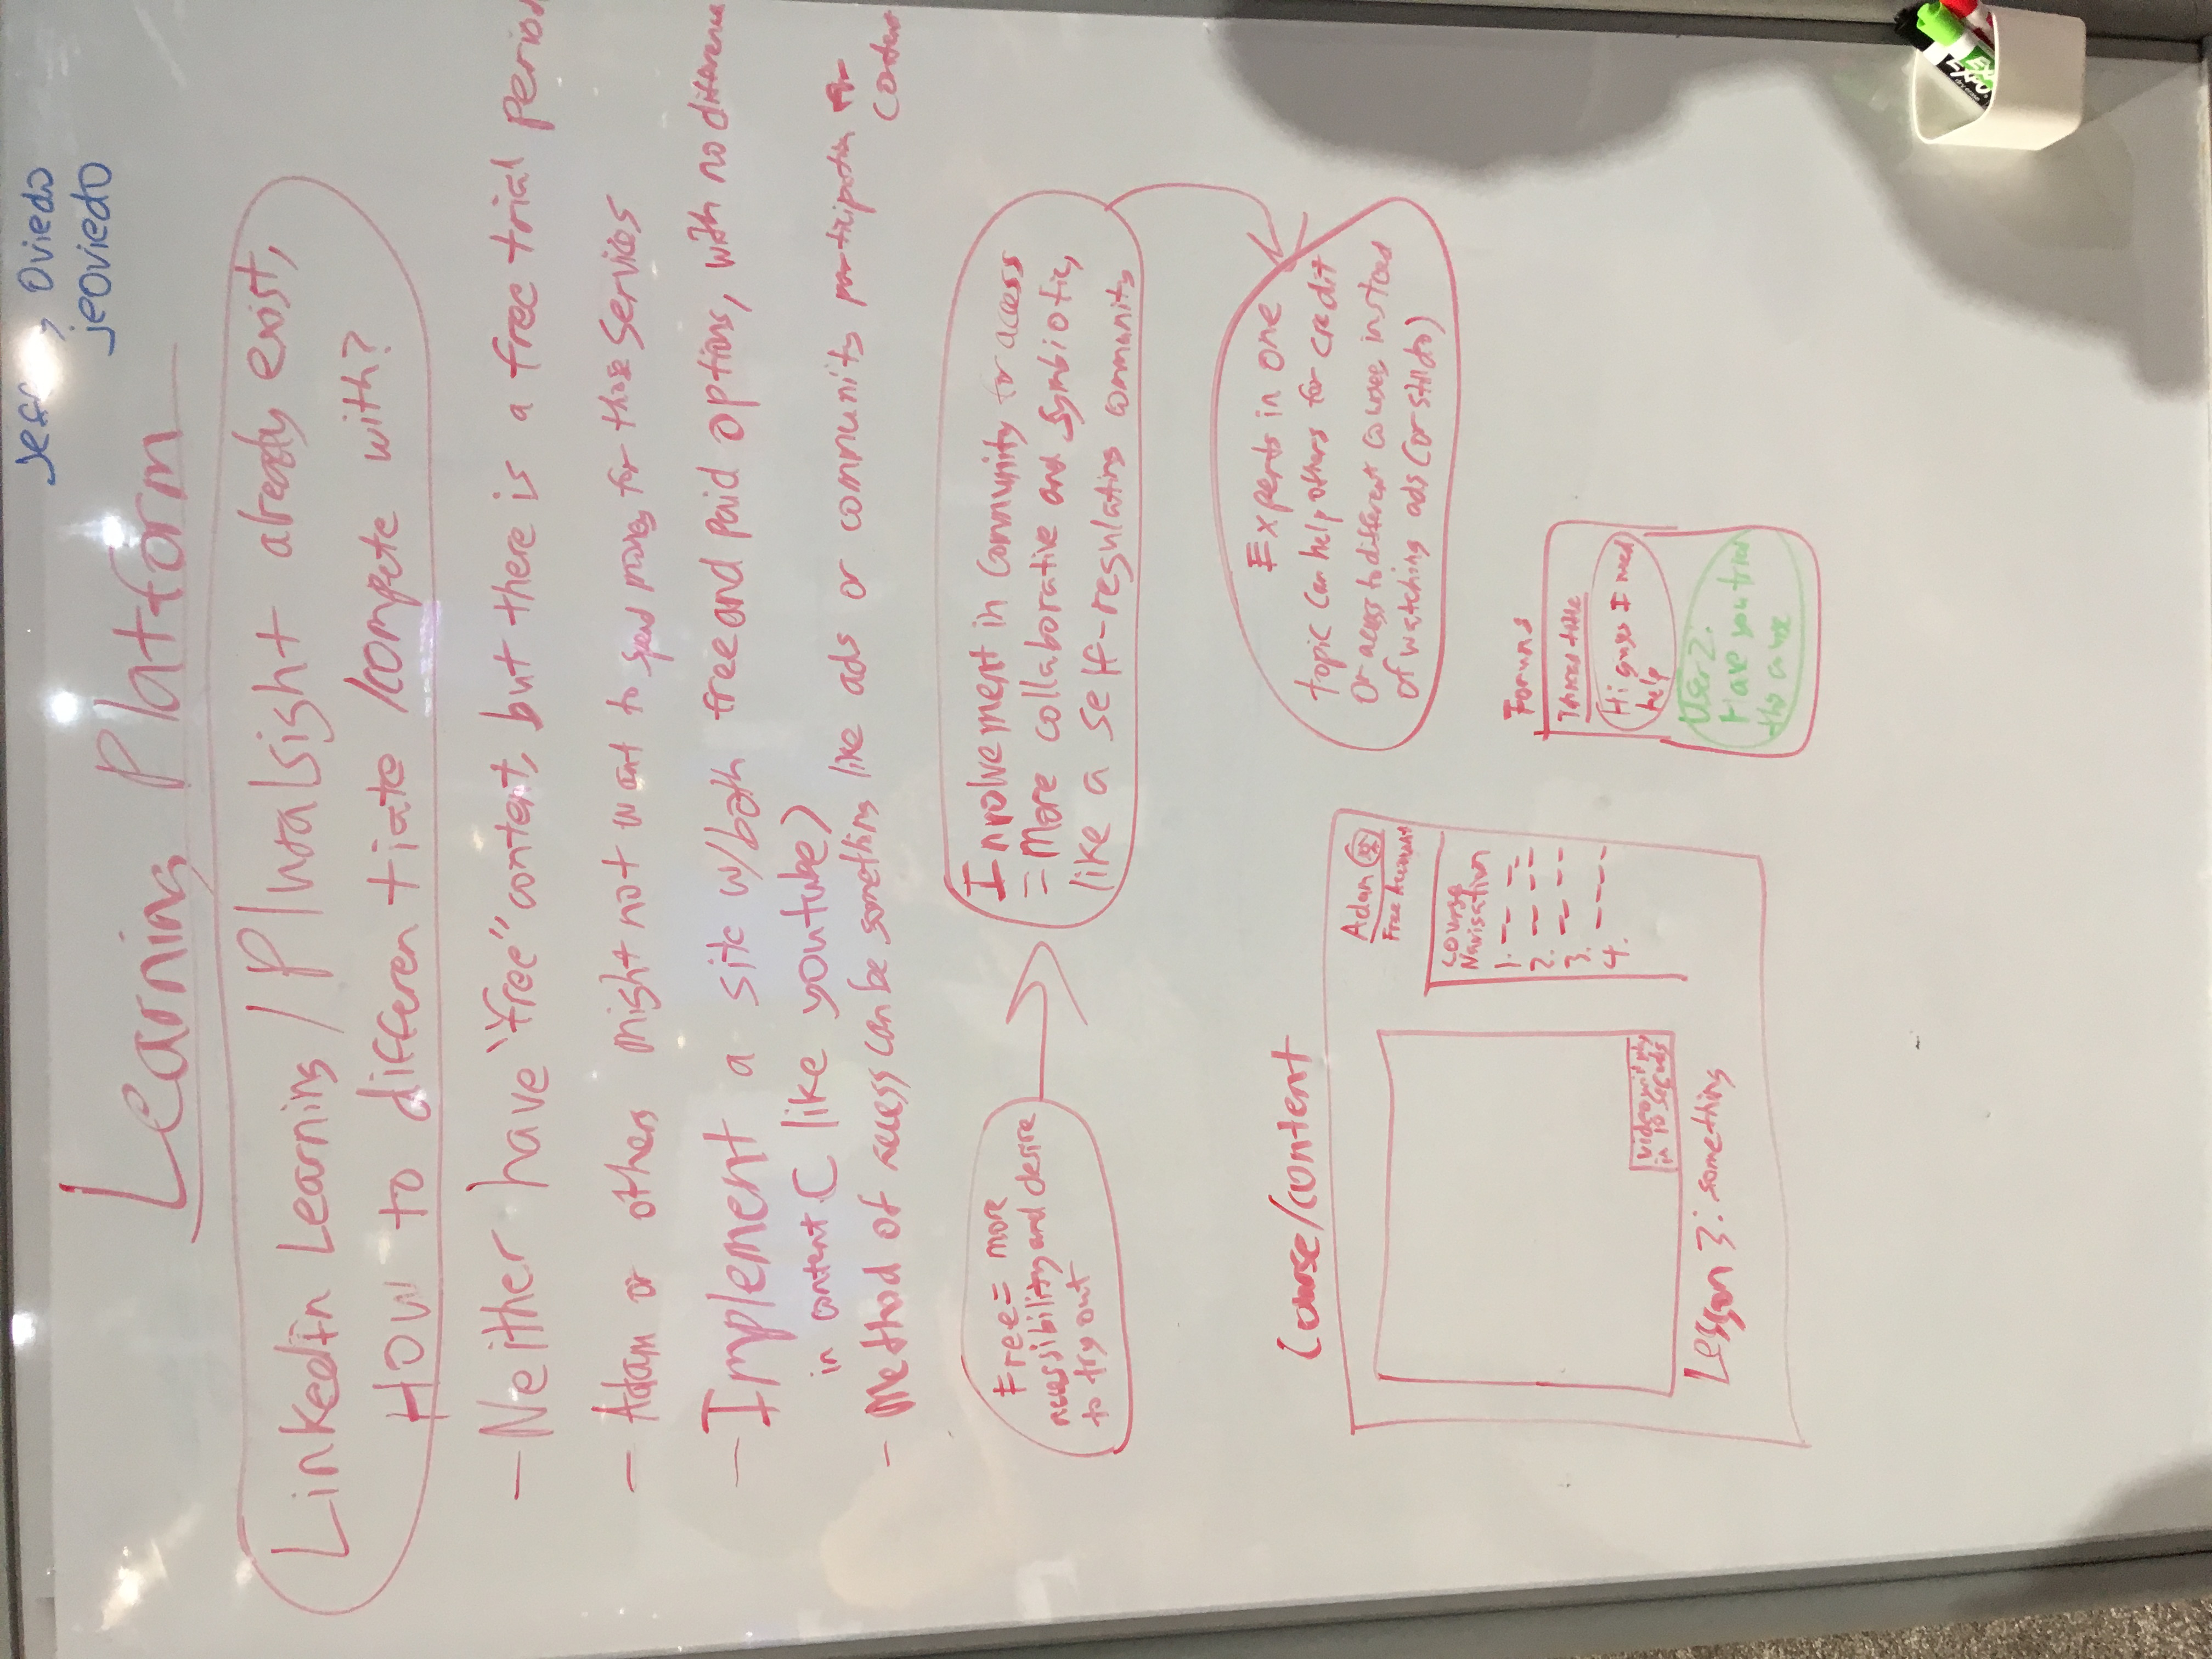 Oviedo
jeoviedo
Learning Platform
LinkedIn Learning / Pluralsight already exist,
How to differentiate /compete with?
- Neither have "free" content, but there is a free trial period
- Adam or others might not want to spend money for those services
- Implement a site w/both free and paid options, with no difference
in content. (like youtube)
- Method of access can be something like ads or community participation for
content
Free = more
accessibility and desire
to try out
Involvement in community for access
= More collaborative and symbiotic,
like a self-regulating community
Experts in one
topic can help others for credit
or access to different courses, instead
of watching ads (or still do)
Course/content
Adam
Free Account
Course
Navigation
1.
2.
3.
4.
Video will play
in 10 seconds
Lesson 3: something
Forums
Thread title
Hi guys I need
help
User 2:
Have you tried
the course
EXPO